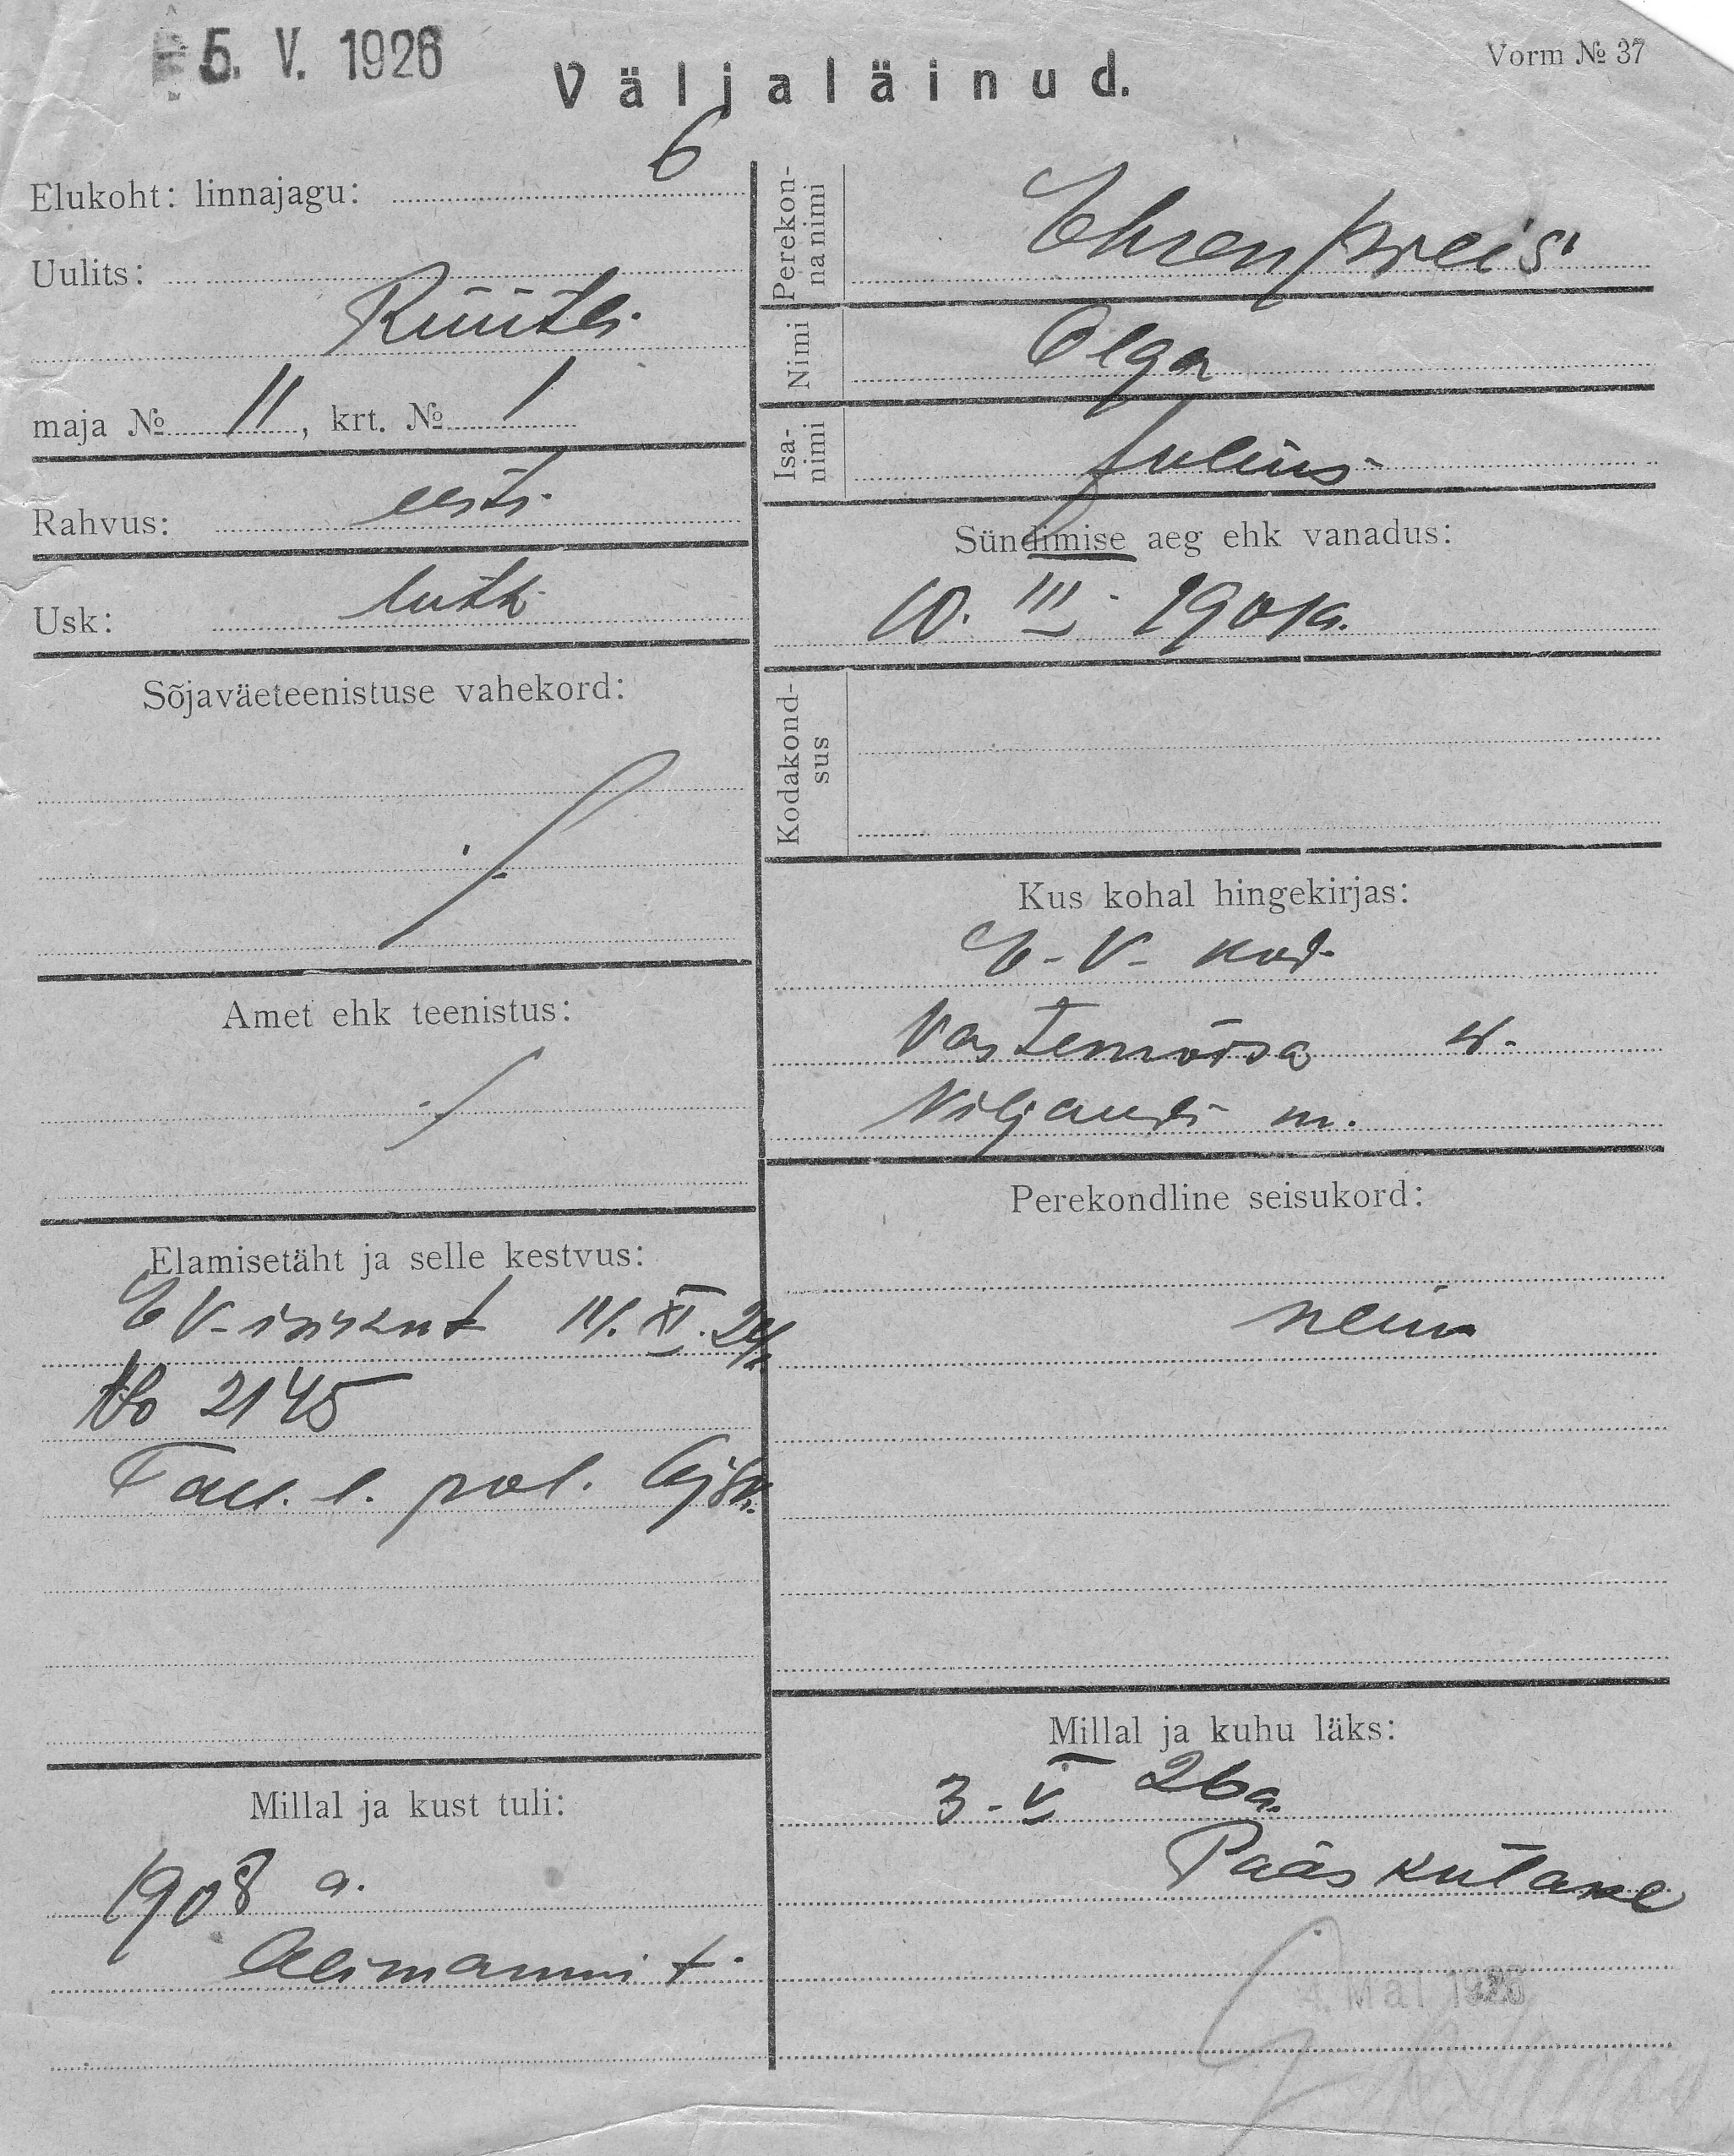 5. V. 1926
Väljaläinud.
Vorm № 37
Elukoht: linnajagu: 6
Uulits:
Rüütli
maja № 11, krt. № 1
Rahvus: eesti
Usk: luth
Sõjaväeteenistuse vahekord:
Amet ehk teenistus:
Elamisetäht ja selle kestvus:
E V-isikut 14. XI. 24
No 2145
Tall. l. pol.
Millal ja kust tuli:
1908 a.
t.
Perekon-
na nimi
Ehrenpreis
Nimi
Olga
Isa-
nimi
Julius
Sündimise aeg ehk vanadus:
10. III 1901a.
Kodakond-
sus
Kus kohal hingekirjas:
E-V- kod.
Vastemõisa v.
Viljandi m.
Perekondline seisukord:
neiu
Millal ja kuhu läks:
3-V 26a.
Pääsküla
4. Mai 1926